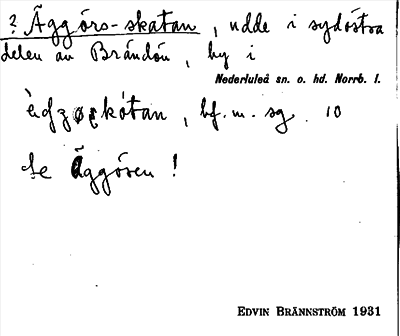 ? Äggörs-skatan, udde i sydöstra
delen av Brändön, by i
Nederluleå sn. o. hd. Norrb. l.
bf. m. sg. 10
Se Äggören !
EDVIN BRÄNNSTRÖM 1931